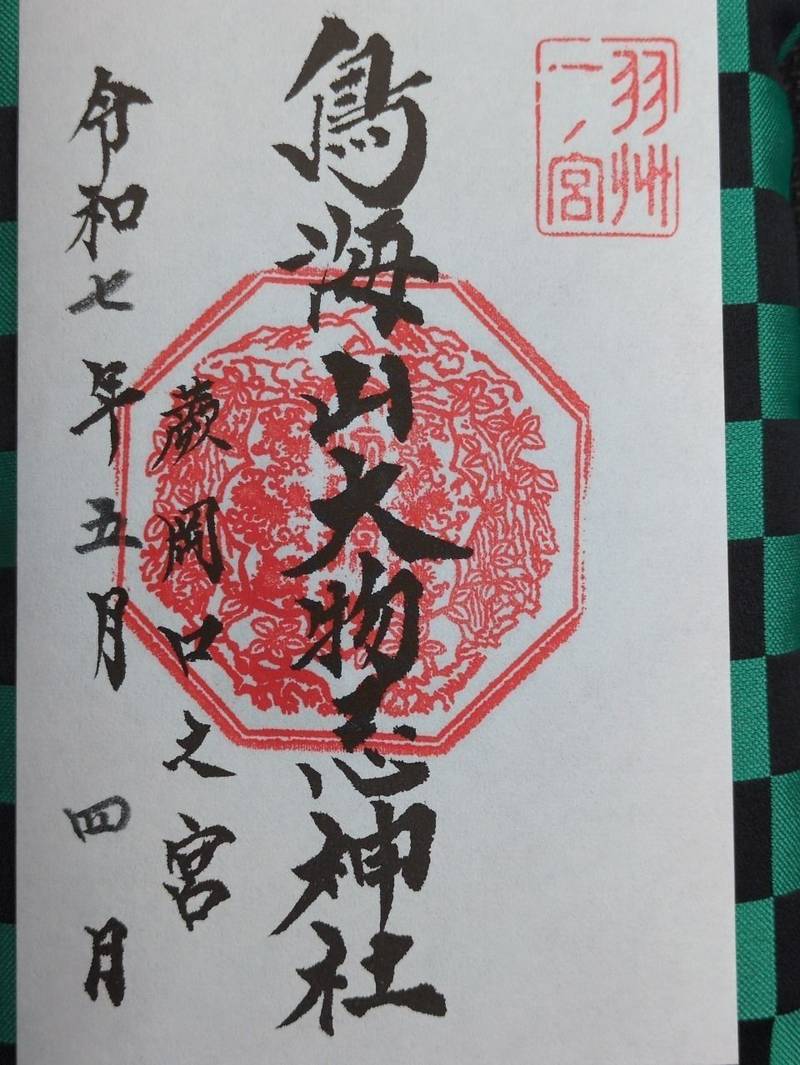 羽州
一ノ宮
鳥海山大物忌神社
蕨岡口之宮
令和七年五月四日